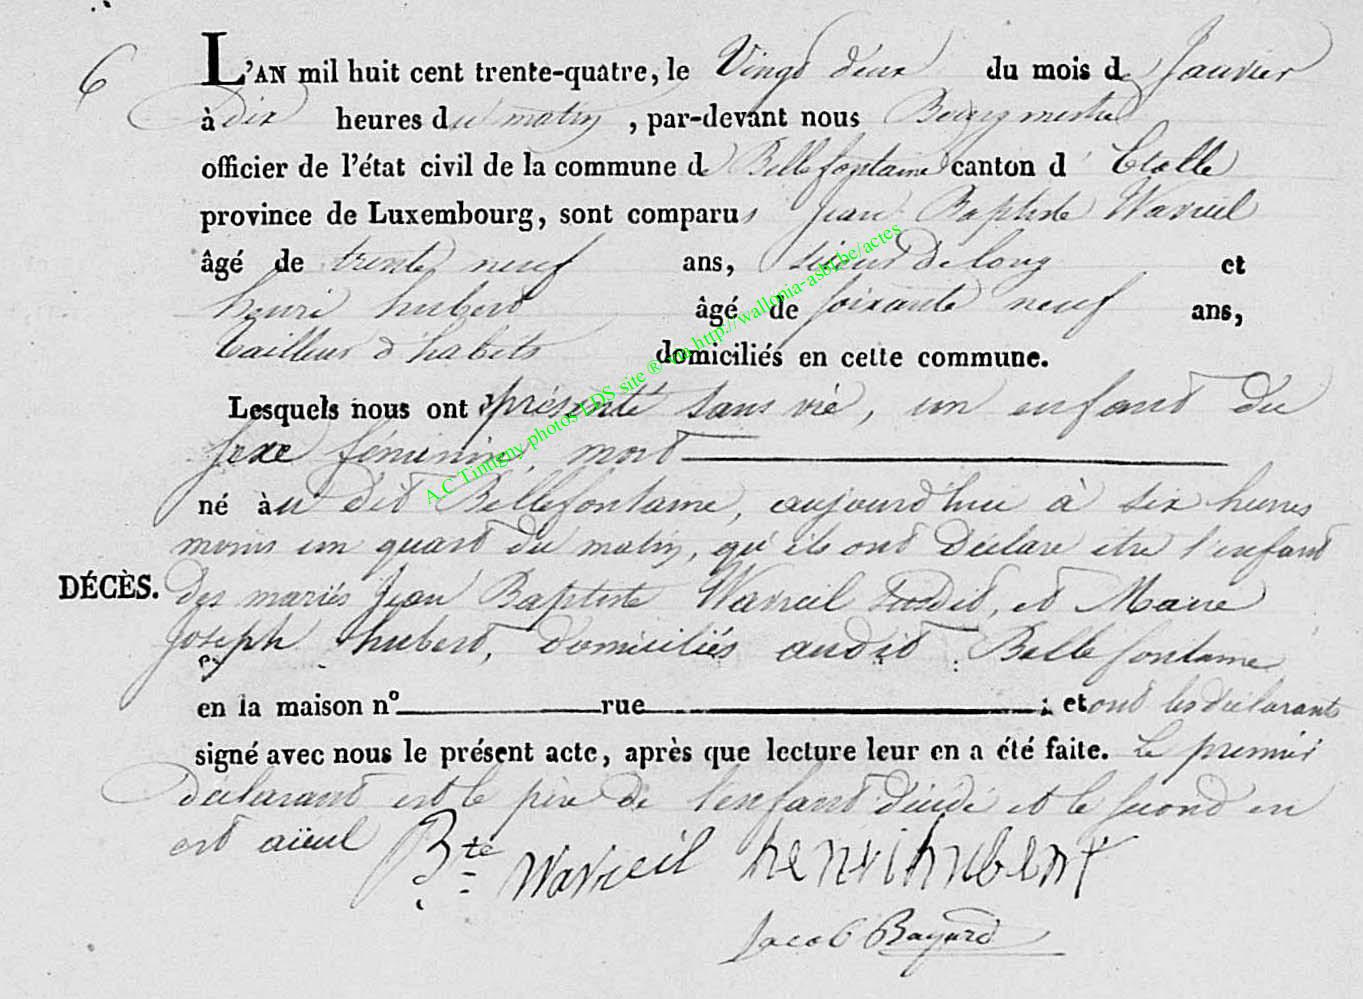 6
L'AN mil huit cent trente-quatre, le Vingt deux du mois de Janvier
à dix heures du matin, par-devant nous Bourgmestre
officier de l'état civil de la commune de Bellefontaine canton d'Etalle
province de Luxembourg, sont comparus Jean Baptiste Wavreil
âgé de trente neuf ans, scieur de long et
henri hubert âgé de soixante neuf ans,
tailleur d'habits domiciliés en cette commune.
Lesquels nous ont présenté sans vie, un enfant du
sexe féminin, mort
né au dit Bellefontaine, aujourd'hui à six heures
moins un quart du matin, qu'ils ont déclaré être l'enfant
DÉCÈS. des mariés Jean Baptiste Wavreil susdit, et Marie
Joseph hubert, domiciliés audit Bellefontaine
en la maison nº rue ; et ont les déclarants
signé avec nous le présent acte, après que lecture leur en a été faite. Le premier
déclarant est le père de l'enfant décédé et le second en
est aïeul
Bte Wavreil henri hubert
Jacob Bayard
A.C Tintigny photos LDS site ® http://wallonia-asbl.be/actes